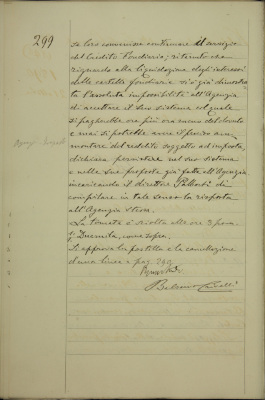 299
se loro convenisse continuare il servizio
del Credito Fondiario; ritenuto che
riguardo alla liquidazione degli interessi
delle cartelle fondiarie si è già dimostra
ta l'assoluta impossibilità all'Agenzia
di accettare il suo sistema col quale
si pagherebbe ora più ora meno del dovuto
e mai si potrebbe avere il preciso am
montare del reddito soggetto ad imposta,
dichiara persistere nel suo sistema
e nelle sue proposte già fatte all'Agenzia
incaricando il direttore di
compilare in tale senso la risposta
all'Agenzia stessa.
La tornata è sciolta alle ore 3 pom.
come sopra.
Si approva la postilla e la cancellazione
d'una linea a pag. 299